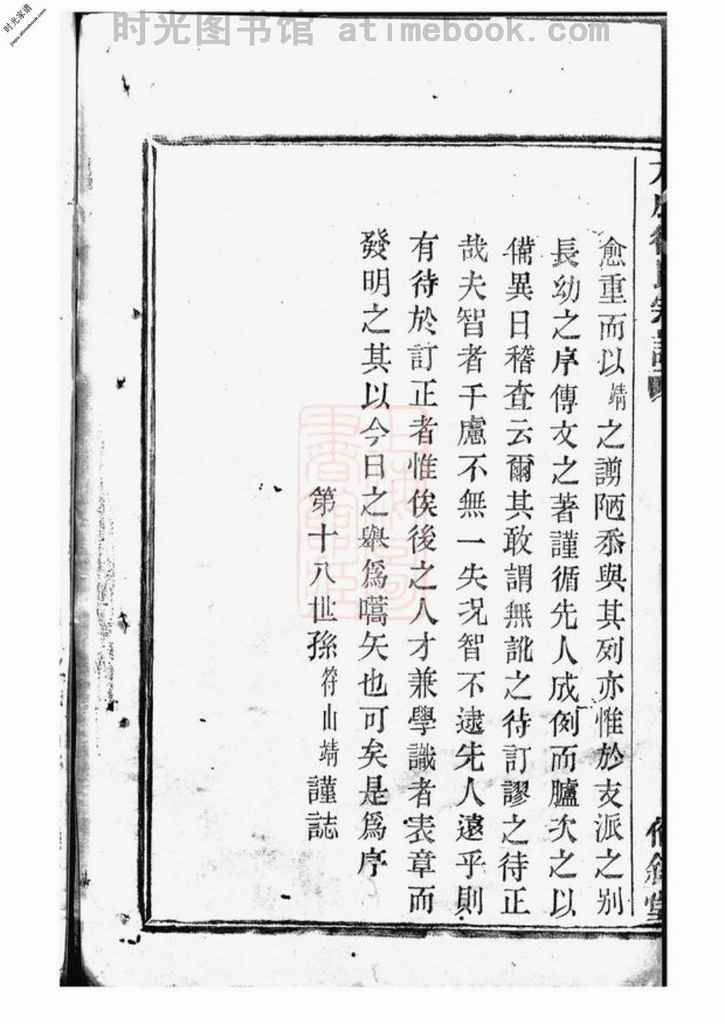 时光图书馆 atimebook.com
时光家谱
愈重而以靖之謭陋忝與其列亦惟於支派之别
長幼之序傳文之著謹循先人成例而臚次之以
備異日稽查云爾其敢謂無訛之待訂謬之待正
哉夫智者千慮不無一失况智不逮先人遠乎則
有待於訂正者惟俟後之人才兼學識者表章而
發明之其以今日之舉爲嚆矢也可矣是爲序
第十八世孫符山靖謹誌